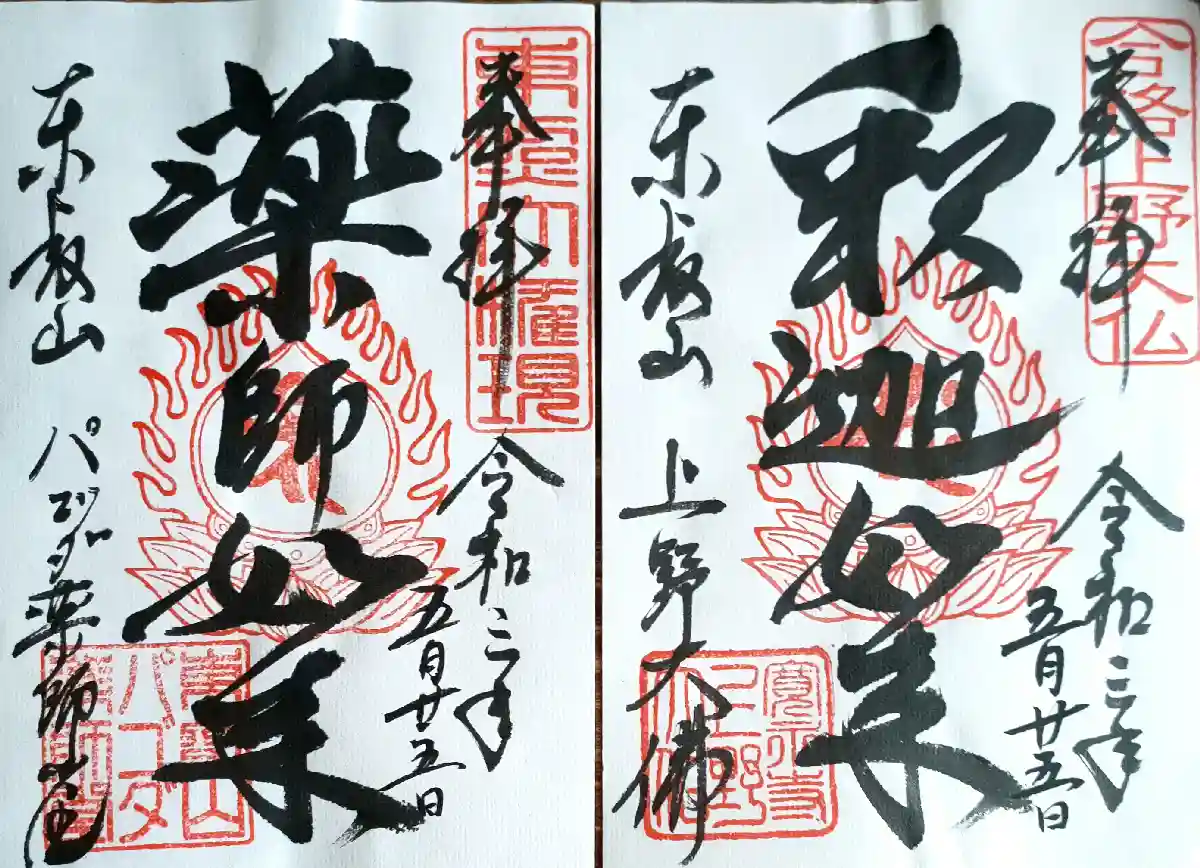 合格上野大仏
奉拝
令和三年
五月廿五日
釈迦如来
東叡山 上野大佛
寛永寺
上野
大仏
東照大権現
奉拝
令和三年
五月廿五日
薬師如来
東叡山 パゴダ薬師堂
東叡山
パゴダ
薬師堂